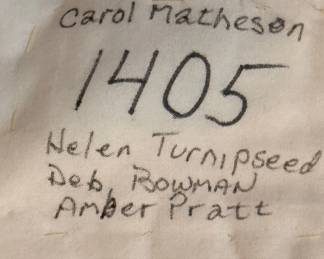 Carol Matheson
1405
Helen Turnipseed
Deb, BOWMAN
Amber Pratt